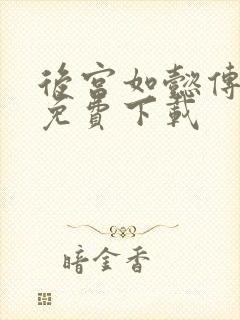 後宮如懿傳
免費下載
暗金香